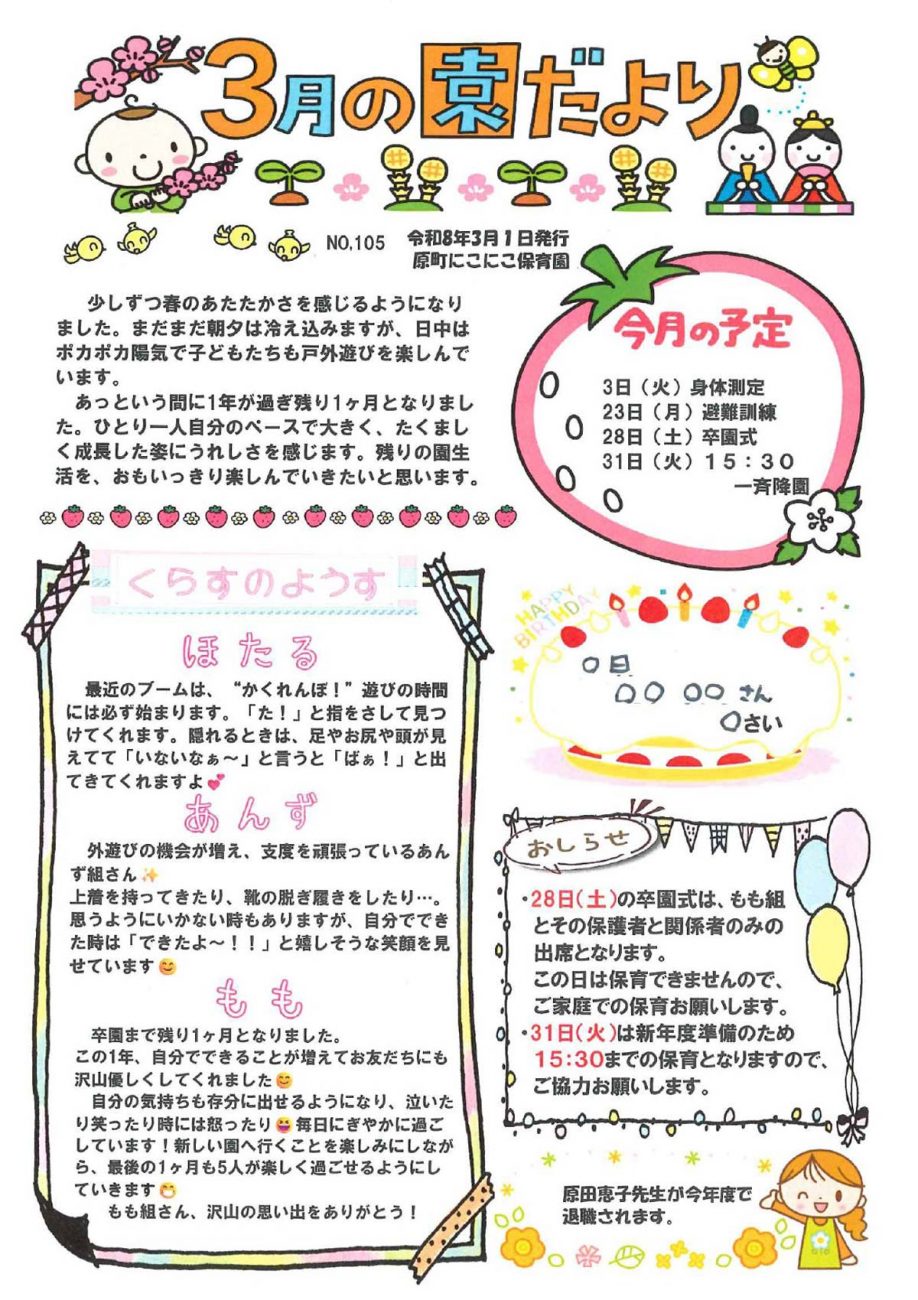 3月の園だより
NO,105 令和8年3月1日発行
原町にこにこ保育園
少しずつ春のあたたかさを感じるようになり
ました。まだまだ朝夕は冷え込みますが、日中は
ポカポカ陽気で子どもたちも戸外遊びを楽しんで
います。
あっという間に1年が過ぎ残り1ヶ月となりまし
た。ひとり一人自分のペースで大きく、たくまし
く成長した姿にうれしさを感じます。残りの園生
活を、おもいっきり楽しんでいきたいと思います。
今月の予定
3日（火）身体測定
23日（月）避難訓練
28日（土）卒園式
31日（火）１５：３０
一斉降園
くらすのようす
ほたる
最近のブームは、“かくれんぼ！”遊びの時間
には必ず始まります。「た！」と指をさして見つ
けてくれます。隠れるときは、足やお尻や頭が見
えてて「いないなぁ～」と言うと「ばぁ！」と出
てきてくれますよ💕
あんず
外遊びの機会が増え、支度を頑張っているあん
ず組さん✨
上着を持ってきたり、靴の脱ぎ履きをしたり…。
思うようにいかない時もありますが、自分ででき
た時は「できたよ～！！」と嬉しそうな笑顔を見
せています😊
もも
卒園まで残り1ヶ月となりました。
この1年、自分でできることが増えてお友だちにも
沢山優しくしてくれました😊
自分の気持ちも存分に出せるようになり、泣いた
り笑ったり時には怒ったり😆毎日にぎやかに過ご
しています！新しい園へ行くことを楽しみにしなが
ら、最後の1ヶ月も5人が楽しく過ごせるようにし
ていきます😁
もも組さん、沢山の思い出をありがとう！
HAPPY
BIRTHDAY
〇日
〇〇 〇〇 さん
〇さい
おしらせ
・28日(土)の卒園式は、もも組
とその保護者と関係者のみの
出席となります。
この日は保育できませんので、
ご家庭での保育お願いします。
・31日(火)は新年度準備のため
15:30までの保育となりますので、
ご協力お願いします。
原田恵子先生が今年度で
退職されます。